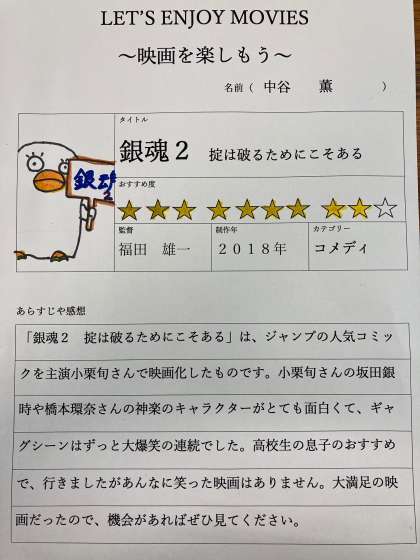 LET'S ENJOY MOVIES
～映画を楽しもう～
名前（　中谷　　薫　　　　）
タイトル
銀魂２　掟は破るためにこそある
銀魂
2
おすすめ度
監督
制作年
カテゴリー
福田　雄一
２０１８年
コメディ
あらすじや感想
「銀魂２　掟は破るためにこそある」は、ジャンプの人気コミッ
クを主演小栗旬さんで映画化したものです。小栗旬さんの坂田銀
時や橋本環奈さんの神楽のキャラクターがとても面白くて、ギャ
グシーンはずっと大爆笑の連続でした。高校生の息子のおすすめ
で、行きましたがあんなに笑った映画はありません。大満足の映
画だったので、機会があればぜひ見てください。